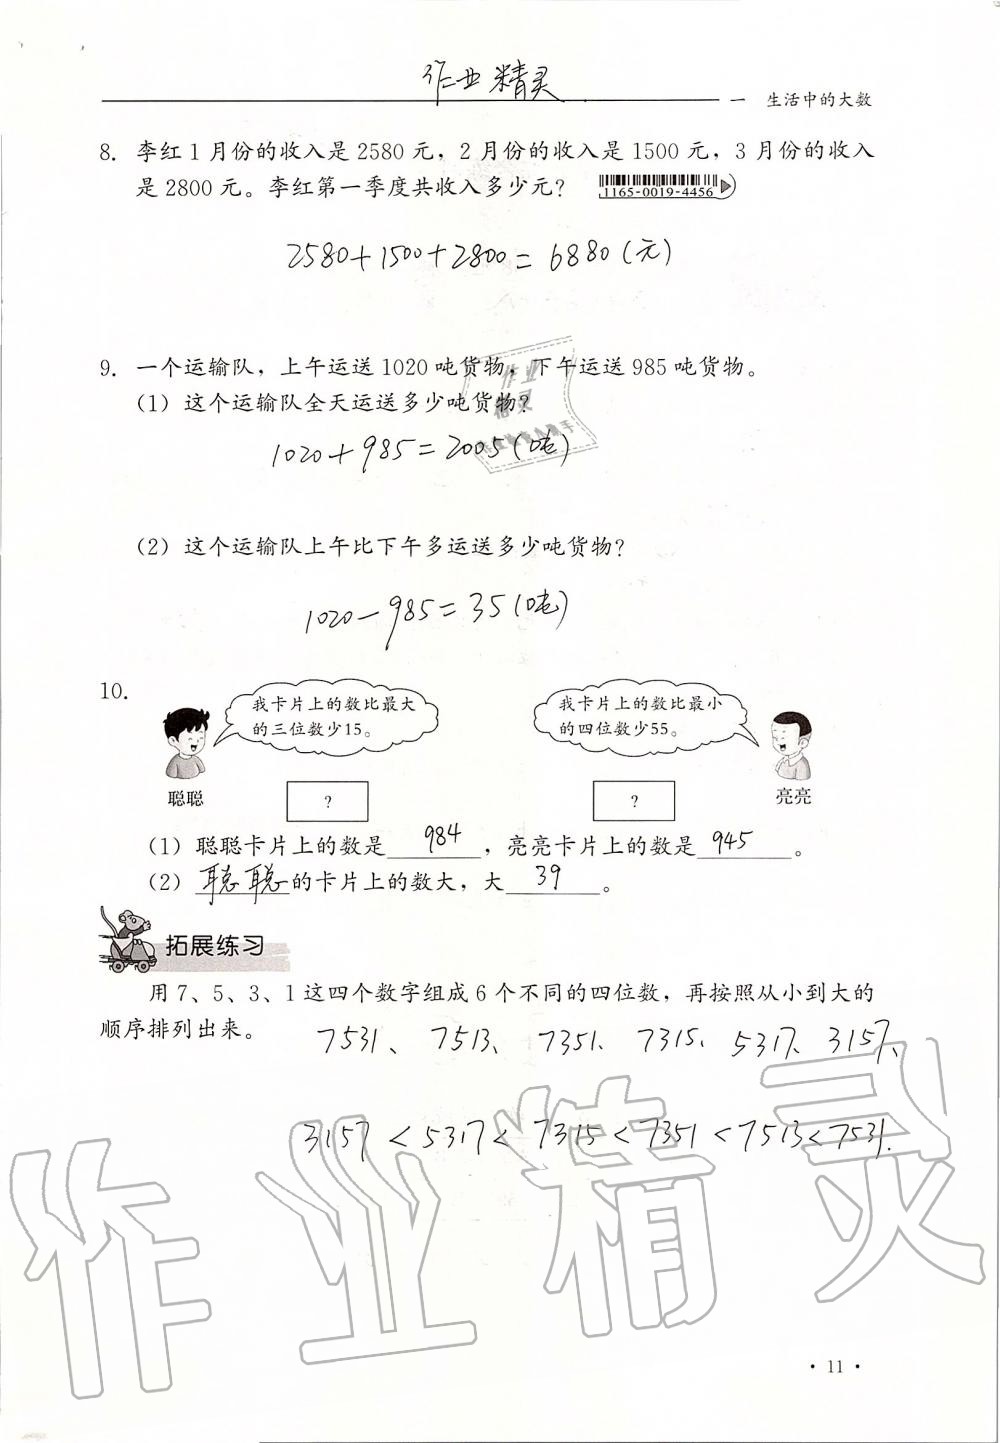 作业精灵
一 生活中的大数
8. 李红1月份的收入是2580元，2月份的收入是1500元，3月份的收入
是2800元。李红第一季度共收入多少元？ 1165-0019-4456
2580+1500+2800=6880(元)
9. 一个运输队，上午运送1020吨货物，下午运送985吨货物。
(1) 这个运输队全天运送多少吨货物？
作业
精灵
1020+985=2005(吨)
(2) 这个运输队上午比下午多运送多少吨货物？
1020-985=35(吨)
10.
我卡片上的数比最大
的三位数少15。
我卡片上的数比最小
的四位数少55。
聪聪
?
?
亮亮
(1) 聪聪卡片上的数是 984 ，亮亮卡片上的数是 945 。
(2) 聪聪的卡片上的数大，大 39 。
拓展练习
用7、5、3、1这四个数字组成6个不同的四位数，再按照从小到大的
顺序排列出来。
7531、7513、7351、7315、5317、3157、
3157<5317<7315<7351<7513<7531.
作业精灵
·11·